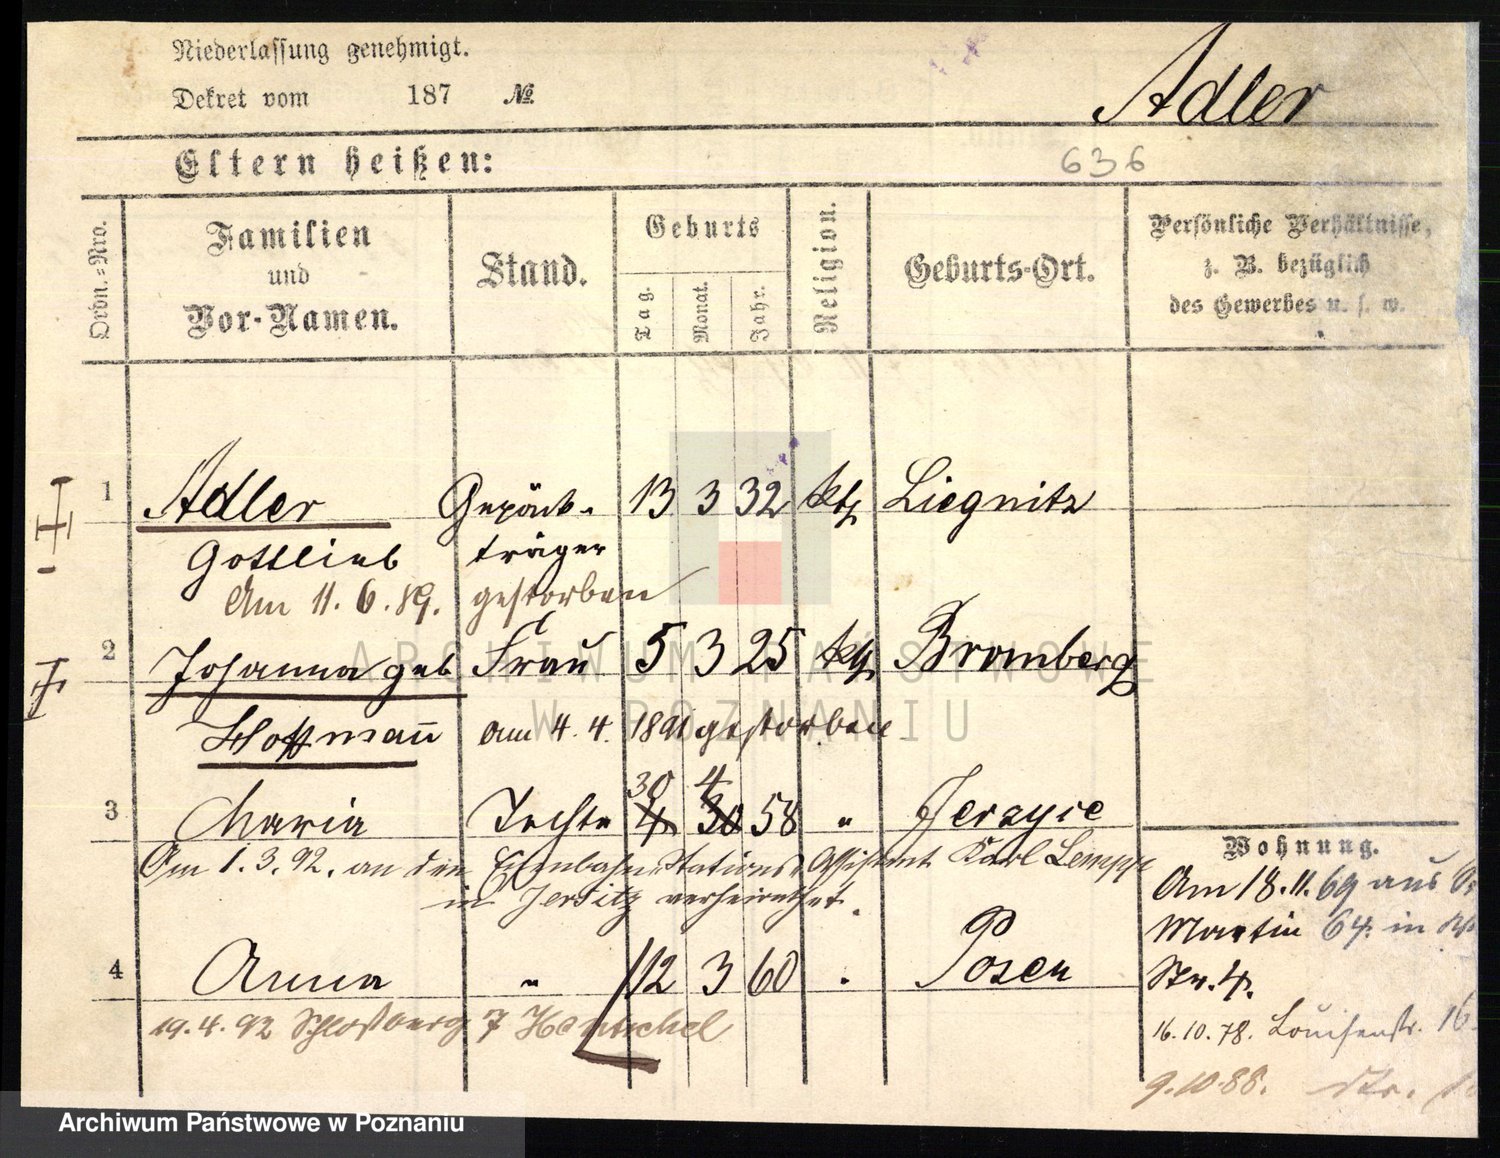 Niederlassung genehmigt.
Dekret vom 187 №
Adler
Eltern heißen:
636
Ordn.-Nro.
Familien und Vor-Namen.
Stand.
Geburts
Tag.
Monat.
Jahr.
Religion.
Geburts-Ort.
Persönliche Verhältnisse,
z. B. bezüglich
des Gewerbes u. s. w.
1 Adler Gepäck- 13 3 32 kth Liegnitz
Gottlieb träger
Am 11. 6. 89. gestorben
2 Johanna geb Frau 5 3 25 kth Bromberg
Hoffmann am 4. 4. 1891 gestorben
30 4
3 Maria Tochter 4 30 58 " Jerzyce
Am 1. 3. 92. an den Eisenbahn-Stations-Assistent Karl
in Jersitz verheirathet.
4 Anna " 12 3 60 . Posen
19. 4. 92 Schloßberg 7 Hentschel
Wohnung.
Am 18. 11. 69 aus
Martin 64. in
Str. 4.
16. 10. 78. Louisenstr. 16
9. 10. 88.
ARCHIWUM PAŃSTWOWE
W POZNANIU
Archiwum Państwowe w Poznaniu